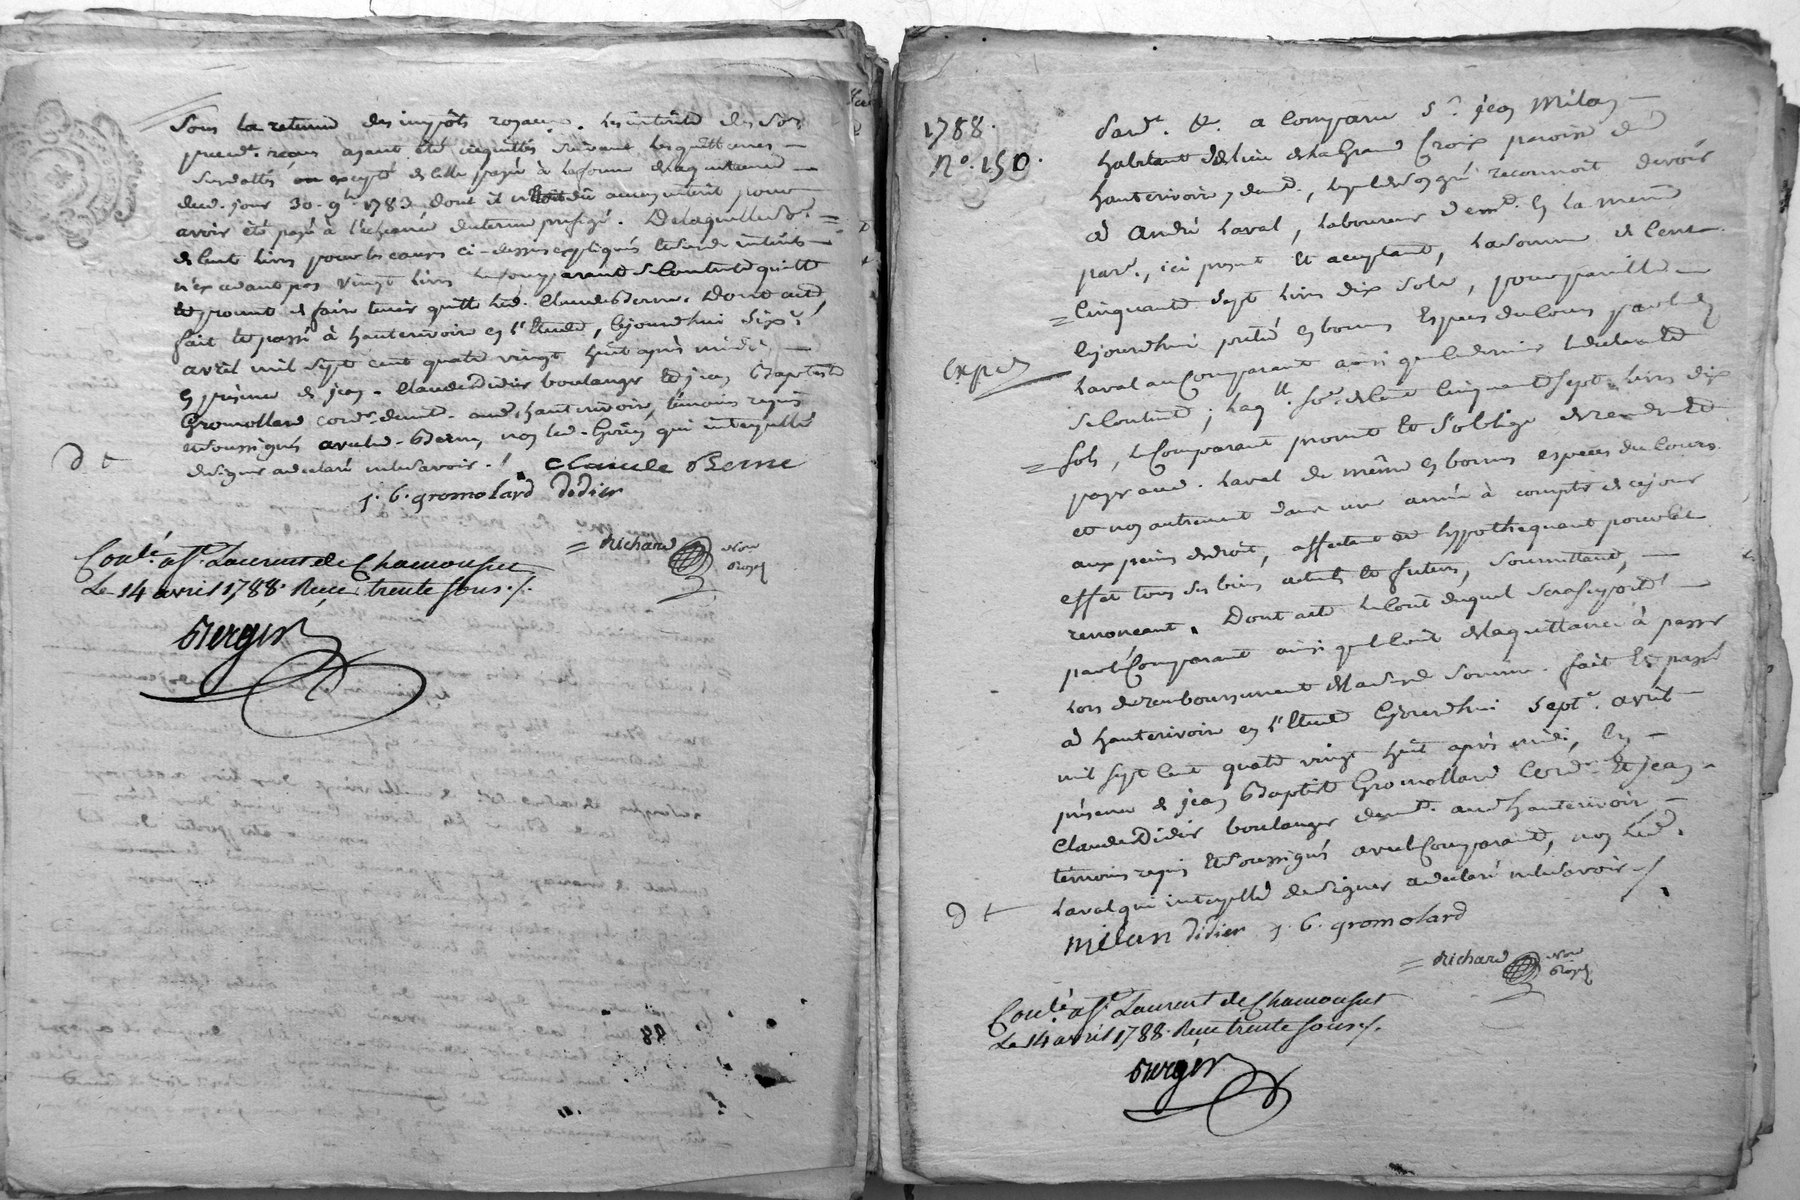 sous la retenue des impôts royaux. les intérêts desd. sols
preced. réaux ayant été acquittés suivant les quittances
susdattés excepté celle payée à la forme de la quittance
dud. jour 30. 9bre 1783. dont il n'étoit dû aucun intérêt pour
avoir été payé à l'échéance du terme prefigé. De laquelle so.e
de cent livres pour les causes ci-dessus expliquées et lesd. intérêts
n'excedant pas vingt livres le comparant se contente quitte
et promet de faire tenir quitte led. Claude Berne. Dont acte,
fait et passé à hauterivoire en l'Etude, cejourdhui dix
avril mil sept cent quatre vingt huit après midi,
en présence de jean-Claude Didier boulanger et jean Baptiste
Gromollard cord.r demt. aud. hauterivoire, témoins requis
et soussignés avec led. Berne, non led. qui interpellé
de signer a declaré ne le savoir ./.
claude Berne
j. b. gromolard didier
D t
= Richard
Not. Royal
Con.lé a St. Laurent de Chamousset
Le 14 avril 1788. Reçu trente sous ./.
Berger
88
1788.
N.o 150.
Pard.t &. a comparu S.r jean Milan
habitant du lieu de la Grand Croix paroisse de
hauterivoire, demt., lequel de son gré reconnoit devoir
à André Laval, laboureur demt. en la même
par., ici présent et acceptant, la somme de cent
= cinquante sept livres dix sols, pour pareille
cejourdhui prêtée en bonnes espèces du cours par led.
expéd.
Laval au comparant ainsi que ce dernier le déclare et
se contente; laq.lle so.e de cent cinquante sept livres dix
= sols, le comparant promet et s'oblige de rendre et
payer aud. Laval de même en bonnes espèces du cours
et non autrement dans une année à compter de ce jour
aux peines de droit, affectant et hypothequant pour cet
effet tous ses biens actuels et futurs, soumettant,
renonceant. Dont acte le cout duquel sera supporté
par le Comparant ainsi que le cout de la quittance à passer
lors du remboursement de lad. somme. fait et passé
à hauterivoire en l'Etude cejourdhui sept avril
mil sept cent quatre vingt huit après midi, en
présence de jean Baptiste Gromollard Cord.r et jean
Claude Didier boulanger demt. aud. hauterivoire
témoins requis et soussignés avec le Comparant, non led.
Laval qui interpellé de signer a declaré ne le savoir ./.
D t
Milan didier j. b. gromolard
= Richard
Not. Royal
Con.lé a St. Laurent de Chamousset
Le 14 avril 1788. Reçu trente sous ./.
Berger